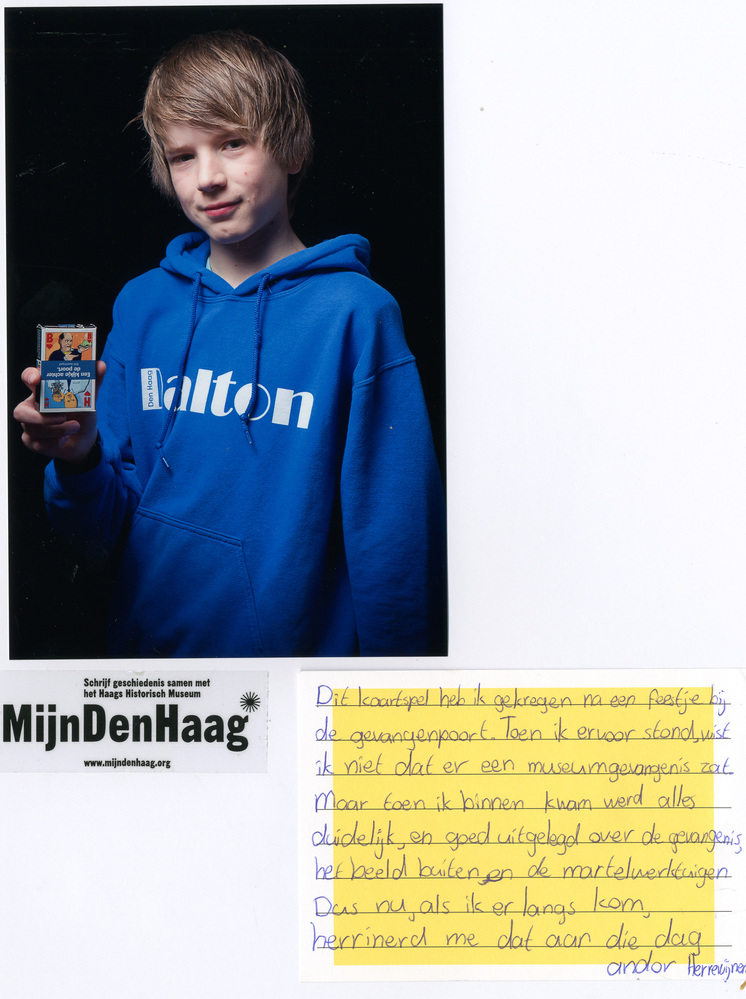 Den Haag
Dalton
B
Een kijkje achter
de poort.
H
Schrijf geschiedenis samen met
het Haags Historisch Museum
MijnDenHaag
www.mijndenhaag.org
Dit kaartspel heb ik gekregen na een feestje bij
de gevangenpoort. Toen ik ervoor stond, wist
ik niet dat er een museumgevangenis zat.
Maar toen ik binnen kwam werd alles
duidelijk, en goed uitgelegd over de gevangenis,
het beeld buiten, en de martelwerktuigen
Dus nu, als ik er langs kom,
herrinerd me dat aan die dag
andor Herrewijnen